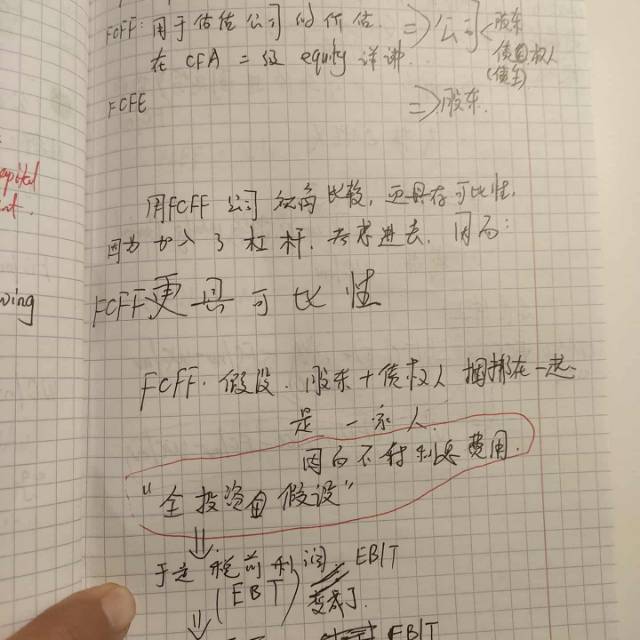 FCFF: 用于估值公司的价值. => 公司 < 股东
债权人
(债主)
在 CFA 二级 equity 详讲.
FCFE => 股东.
apital
用FCFF 公司 视角 比较, 更具有可比性.
因为加入了杠杆, 考虑进去. 因而:
wing
FCFF更具可比性
FCFF. 假设. 股东+债权人 捆绑在一起
是 一家人.
因而不付利息费用.
"全投资 假设"
于是 税前利润 EBIT
(EBT) 变成了.
EBIT